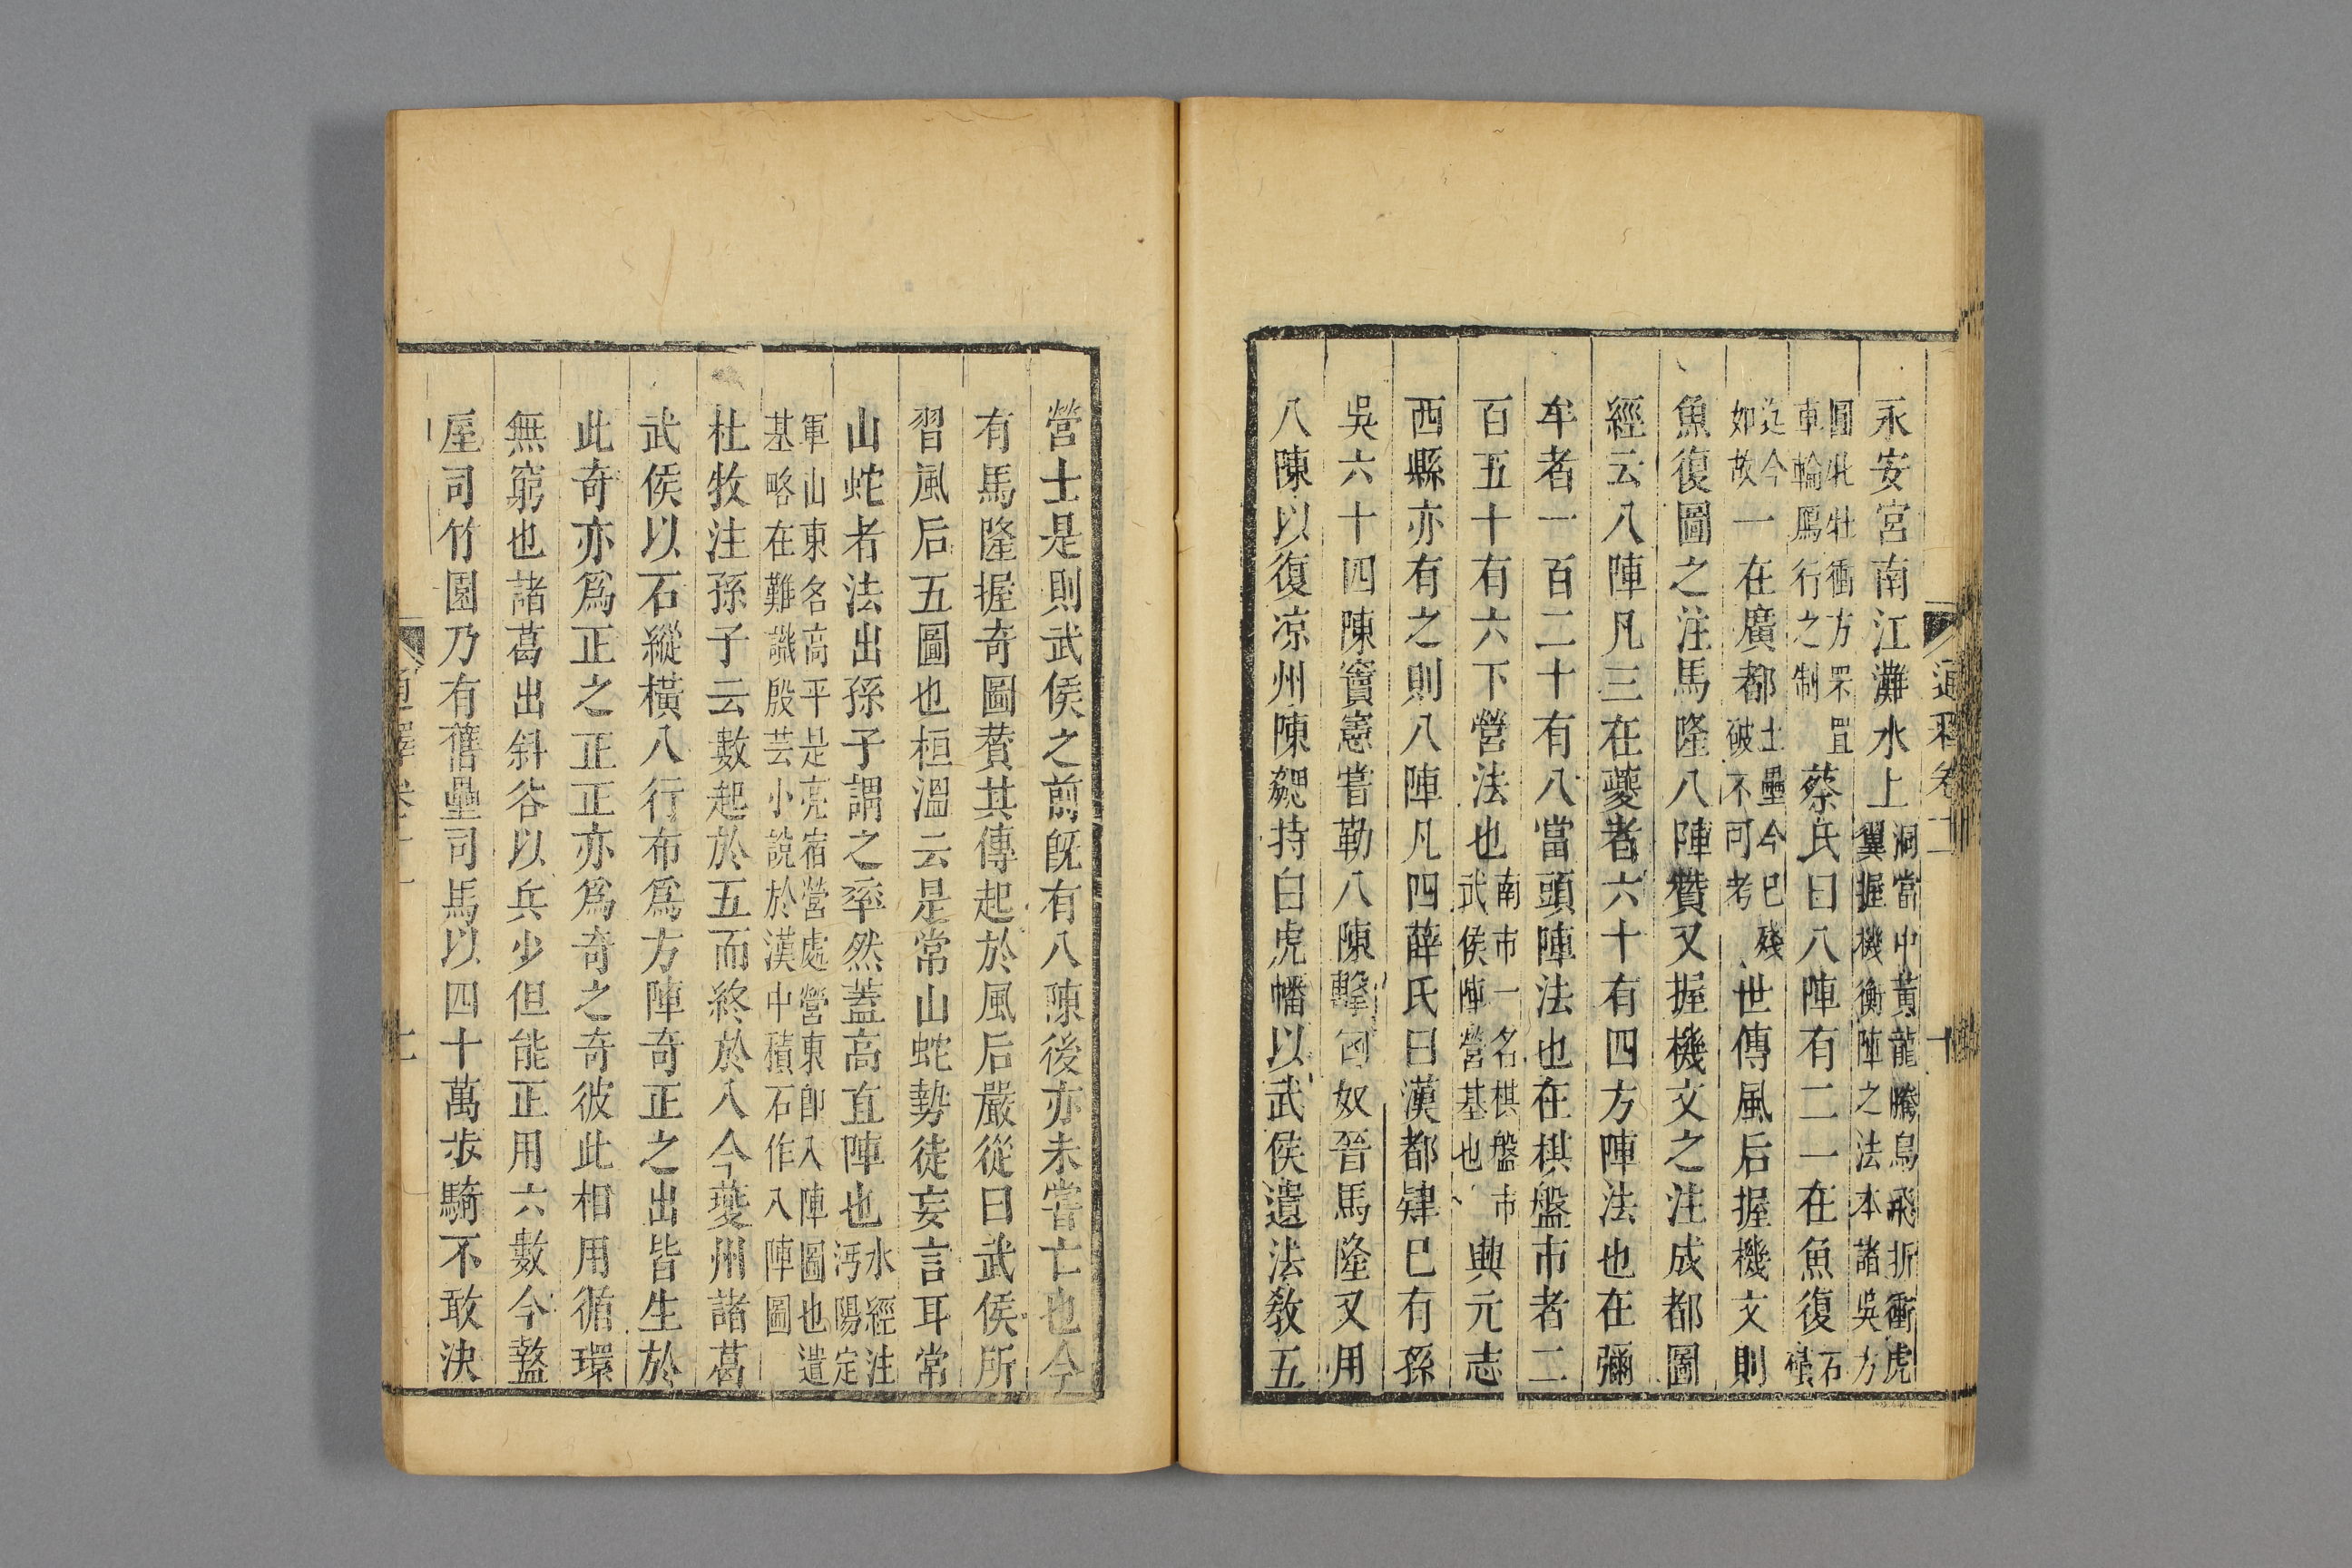 永安宮南江灘水上洞當中黃龍騰鳥飛折衝虎翼握機衡陣之法本諸吳方
圓牝牡衝方罘罝車輪鴈行之制蔡氏曰八陣有二一在魚復石磧
迄今如故一在廣都土壘今已殘破不可考世傳風后握機文則
魚復圖之注馬隆八陣贊又握機文之注成都圖
經云八陣凡三在夔者六十有四方陣法也在彌
牟者一百二十有八當頭陣法也在棋盤市者二
百五十有六下營法也南市一名棋盤市武侯陣營基也興元志
西縣亦有之則八陣凡四薛氏曰漢都肄已有孫
吳六十四陳竇憲嘗勒八陳擊匈奴晉馬隆又用
八陳以復凉州陳勰持白虎幡以武侯遺法教五
通釋卷十
營士是則武侯之前旣有八陳後亦未嘗亡也今
有馬隆握奇圖贊其傳起於風后嚴從曰武侯所
習風后五圖也桓溫云是常山蛇勢徒妄言耳常
山蛇者法出孫子謂之率然蓋高直陣也水經注沔陽定
軍山東名高平是亮宿營處營東卽八陣圖也遺基略在難識殷芸小說於漢中積石作八陣圖
杜牧注孫子云數起於五而終於八今夔州諸葛
武侯以石縱橫八行布爲方陣奇正之出皆生於
此奇亦爲正之正正亦爲奇之奇彼此相用循環
無窮也諸葛出斜谷以兵少但能正用六數今盩
厔司竹園乃有舊壘司馬以四十萬步騎不敢決
通釋卷十一